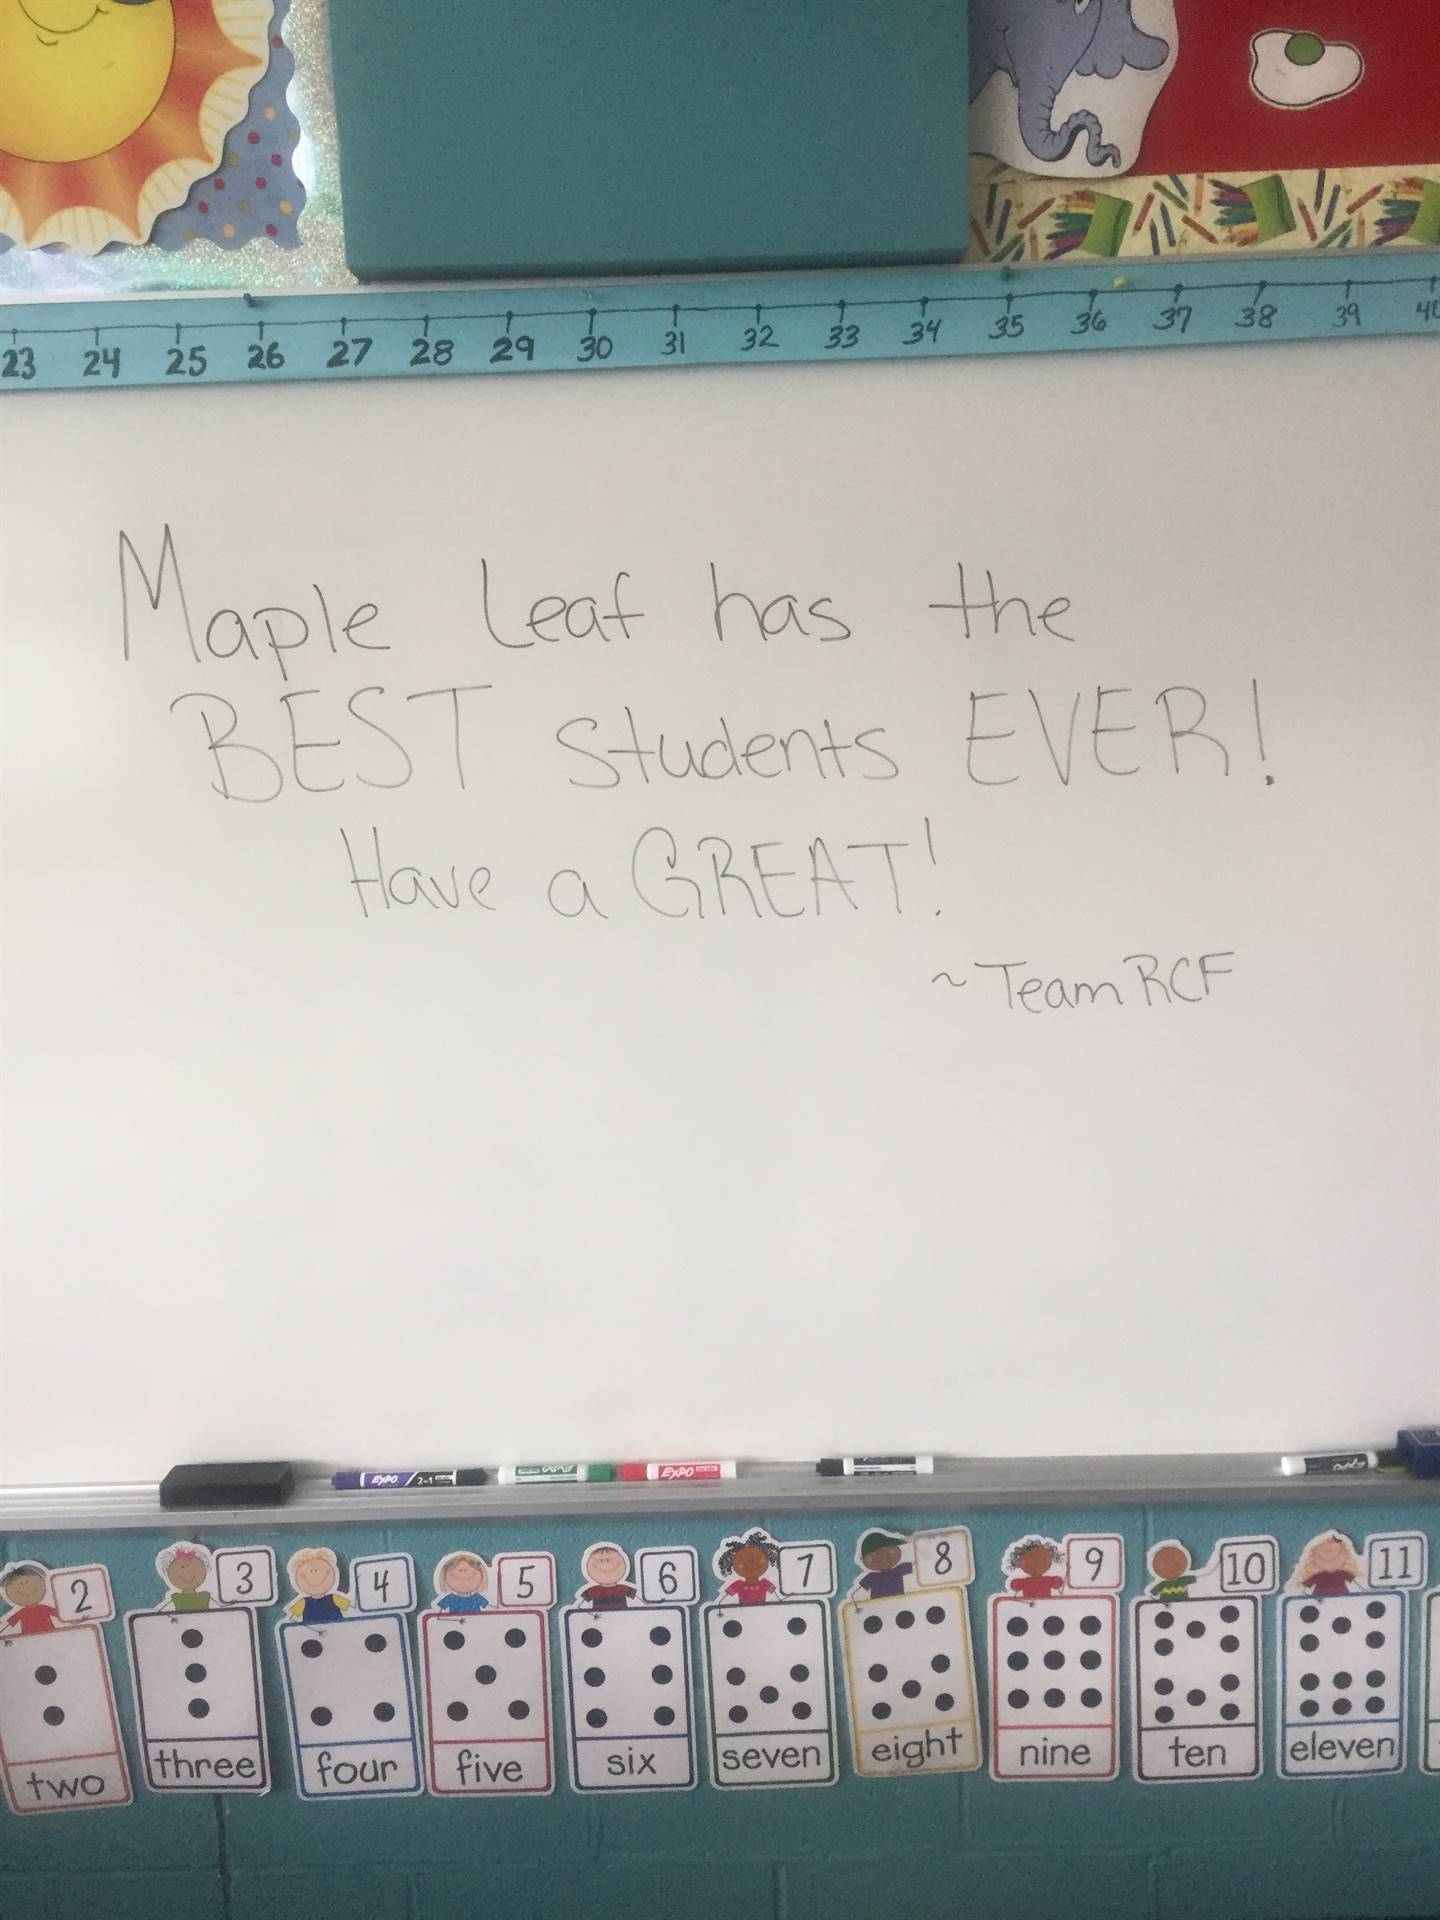 23 24 25 26 27 28 29 30 31 32 33 34 35 36 37 38 39
Maple Leaf has the
BEST students EVER!
Have a GREAT!
~Team RCF
EXPO 2-1
EXPO
EXPO
2 3 4 5 6 7 8 9 10 11
two three four five six seven eight nine ten eleven